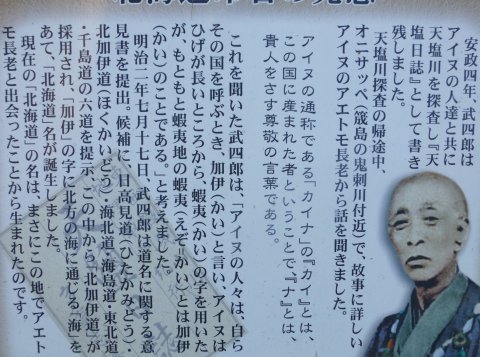 安政四年、武四郎は
アイヌの人達と共に
天塩川を探査し『天
塩日誌』として書き
残しました。
天塩川探査の帰途中、
オニサッペ(筬島の鬼刺川付近)で、故事に詳しい
アイヌのアエトモ長老から話を聞きました。
アイヌの通称である「カイナ」の『カイ』とは、
この国に産まれた者ということで『ナ』とは、
貴人をさす尊敬の言葉である。
これを聞いた武四郎は、「アイヌの人々は、自ら
その国を呼ぶとき、加伊(かい)と言い、アイヌは
ひげが長いところから、蝦夷(かい)の字を用いた
が もともと蝦夷地の蝦夷(えぞ・かい)とは加伊
(かい)のことである。」と考えました。
明治二年七月十七日、武四郎は道名に関する意
見書を提出。候補に、日高見道(ひたかみどう)・
北加伊道(ほくかいどう)・海北道・海島道・東北道
・千島道の六道を提示、この中から「北加伊道」が
採用され、「加伊」の字を北方の海に通じる「海」を
あて、「北海道」名が誕生しました。
現在の「北海道」の名は、まさにこの地でアエト
モ長老と出会ったことから生まれたのです。